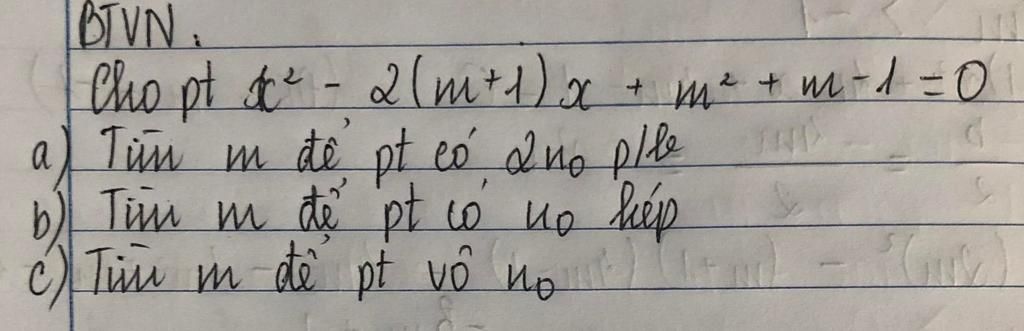 BTVN.
Cho pt x² - 2(m+1)x + m² + m - 1 = 0
a) Tìm m để pt có 2 n₀ p/b
b) Tìm m để pt có n₀ kép
c) Tìm m để pt vô n₀